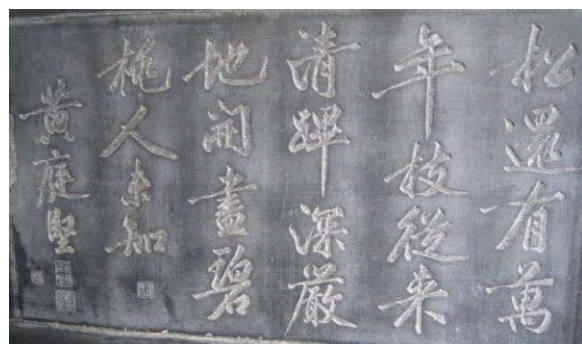 松還有萬
年技從来
清蹕深嚴
地開盡碧
桃人未知
黄庭堅